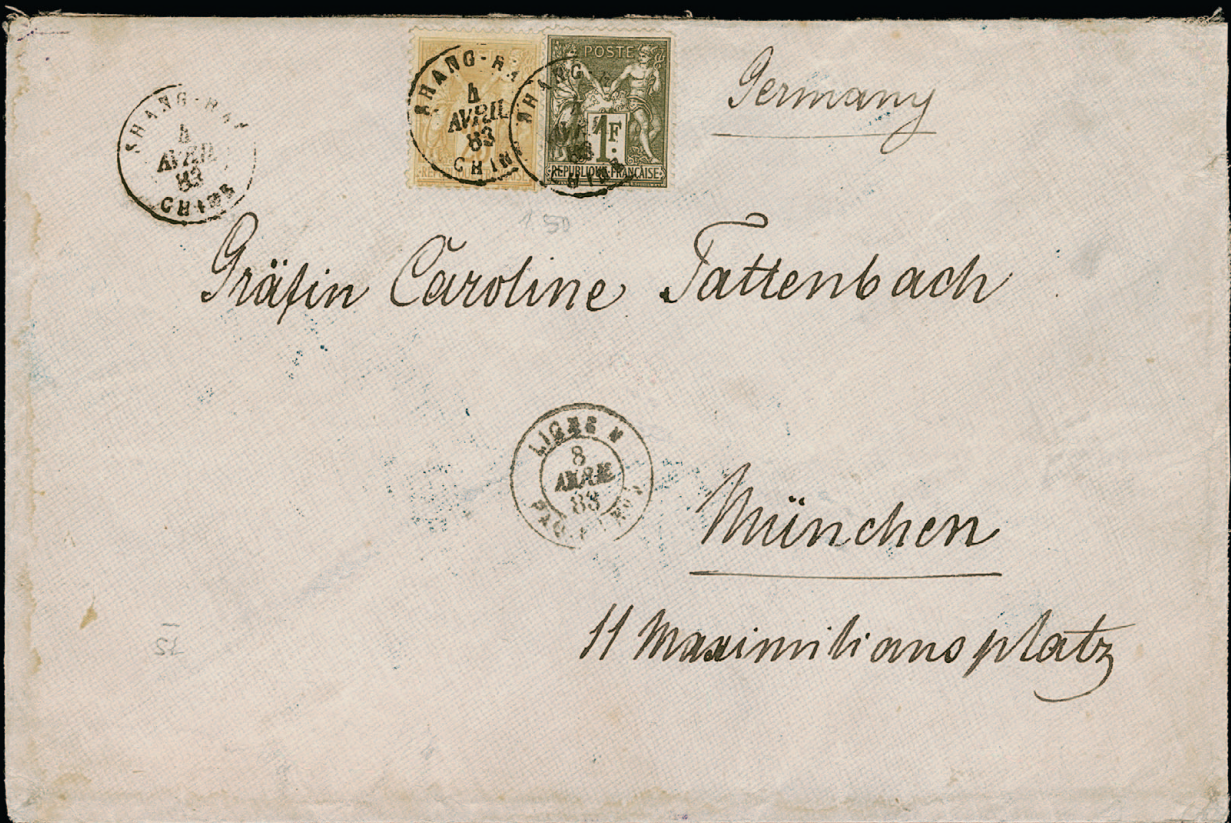 SHANG-HAI
4
AVRIL
83
CHINE
SHANG-HA
4
AVRIL
83
CHINE
SHANG-
AVRIL
83
CHINE
POSTE
1F
REPUBLIQUE FRANÇAISE
REPUBLIQUE
Germany
1.50
Gräfin Caroline Tattenbach
LIGNE N
8
AVRIL
83
PAQ. FR. No
München
11 Maximiliansplatz